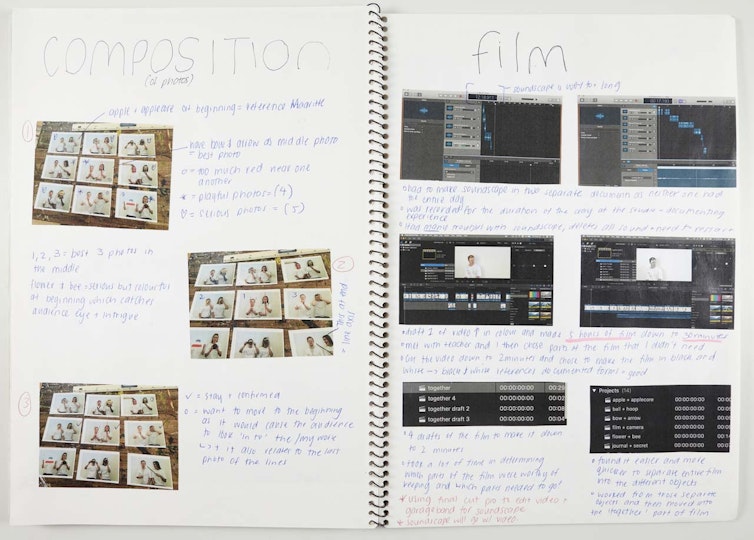 COMPOSITION
(of photos)
apple + applecore at beginning = reference Magritte
①
have bow & arrow as middle photo
= best photo
o = too much red near one
another
* = playful photos = (4)
♡ = serious photos = (5)
1, 2, 3 = best 3 photos in
the middle
flower & bee serious but colourful
at beginning which catches
audience eye + intrigue
②
③
✓ = stay + confirmed
o = want to move to the beginning
as it would cause the audience
to look 'in to' the long work
↳ + it also relates to the last
photo of the lines
film
soundscape is way too long
had to make soundscape in two separate documents as neither one had
the entire day
was recorded for the duration of the day at the studio = documenting
experience
had many troubles with soundscape, deletes all sound + need to restart
draft 1 of video is in colour and made 5 hours of film down to 30 minutes
met with teacher and I then chose parts of the film that I didn't need
cut the video down to 2 minutes and chose to make the film in black and
white → black & white references documented forms = good
together 00:00:00:00 00:29
together 4 00:00:00:00 00:02
together draft 2 00:00:00:00 00:08
together draft 3 00:00:00:00
Projects (14)
apple + applecore 00:00:00:00
ball + hoop 00:00:00:00
bow + arrow 00:00:00:00
film + camera 00:00:00:00
flower + bee 00:00:00:00
journal + secret 00:00:00:00
4 drafts of the film to make it down
to 2 minutes
took a lot of time in determining
which parts of the film were worthy of
keeping and which parts needed to go!
* using final cut pro to edit video +
garageband for soundscape
* soundscape will go w/ video
found it easier and more
quicker to separate entire film
into the different objects
worked from those separate
objects and then moved into
the 'together' part of film